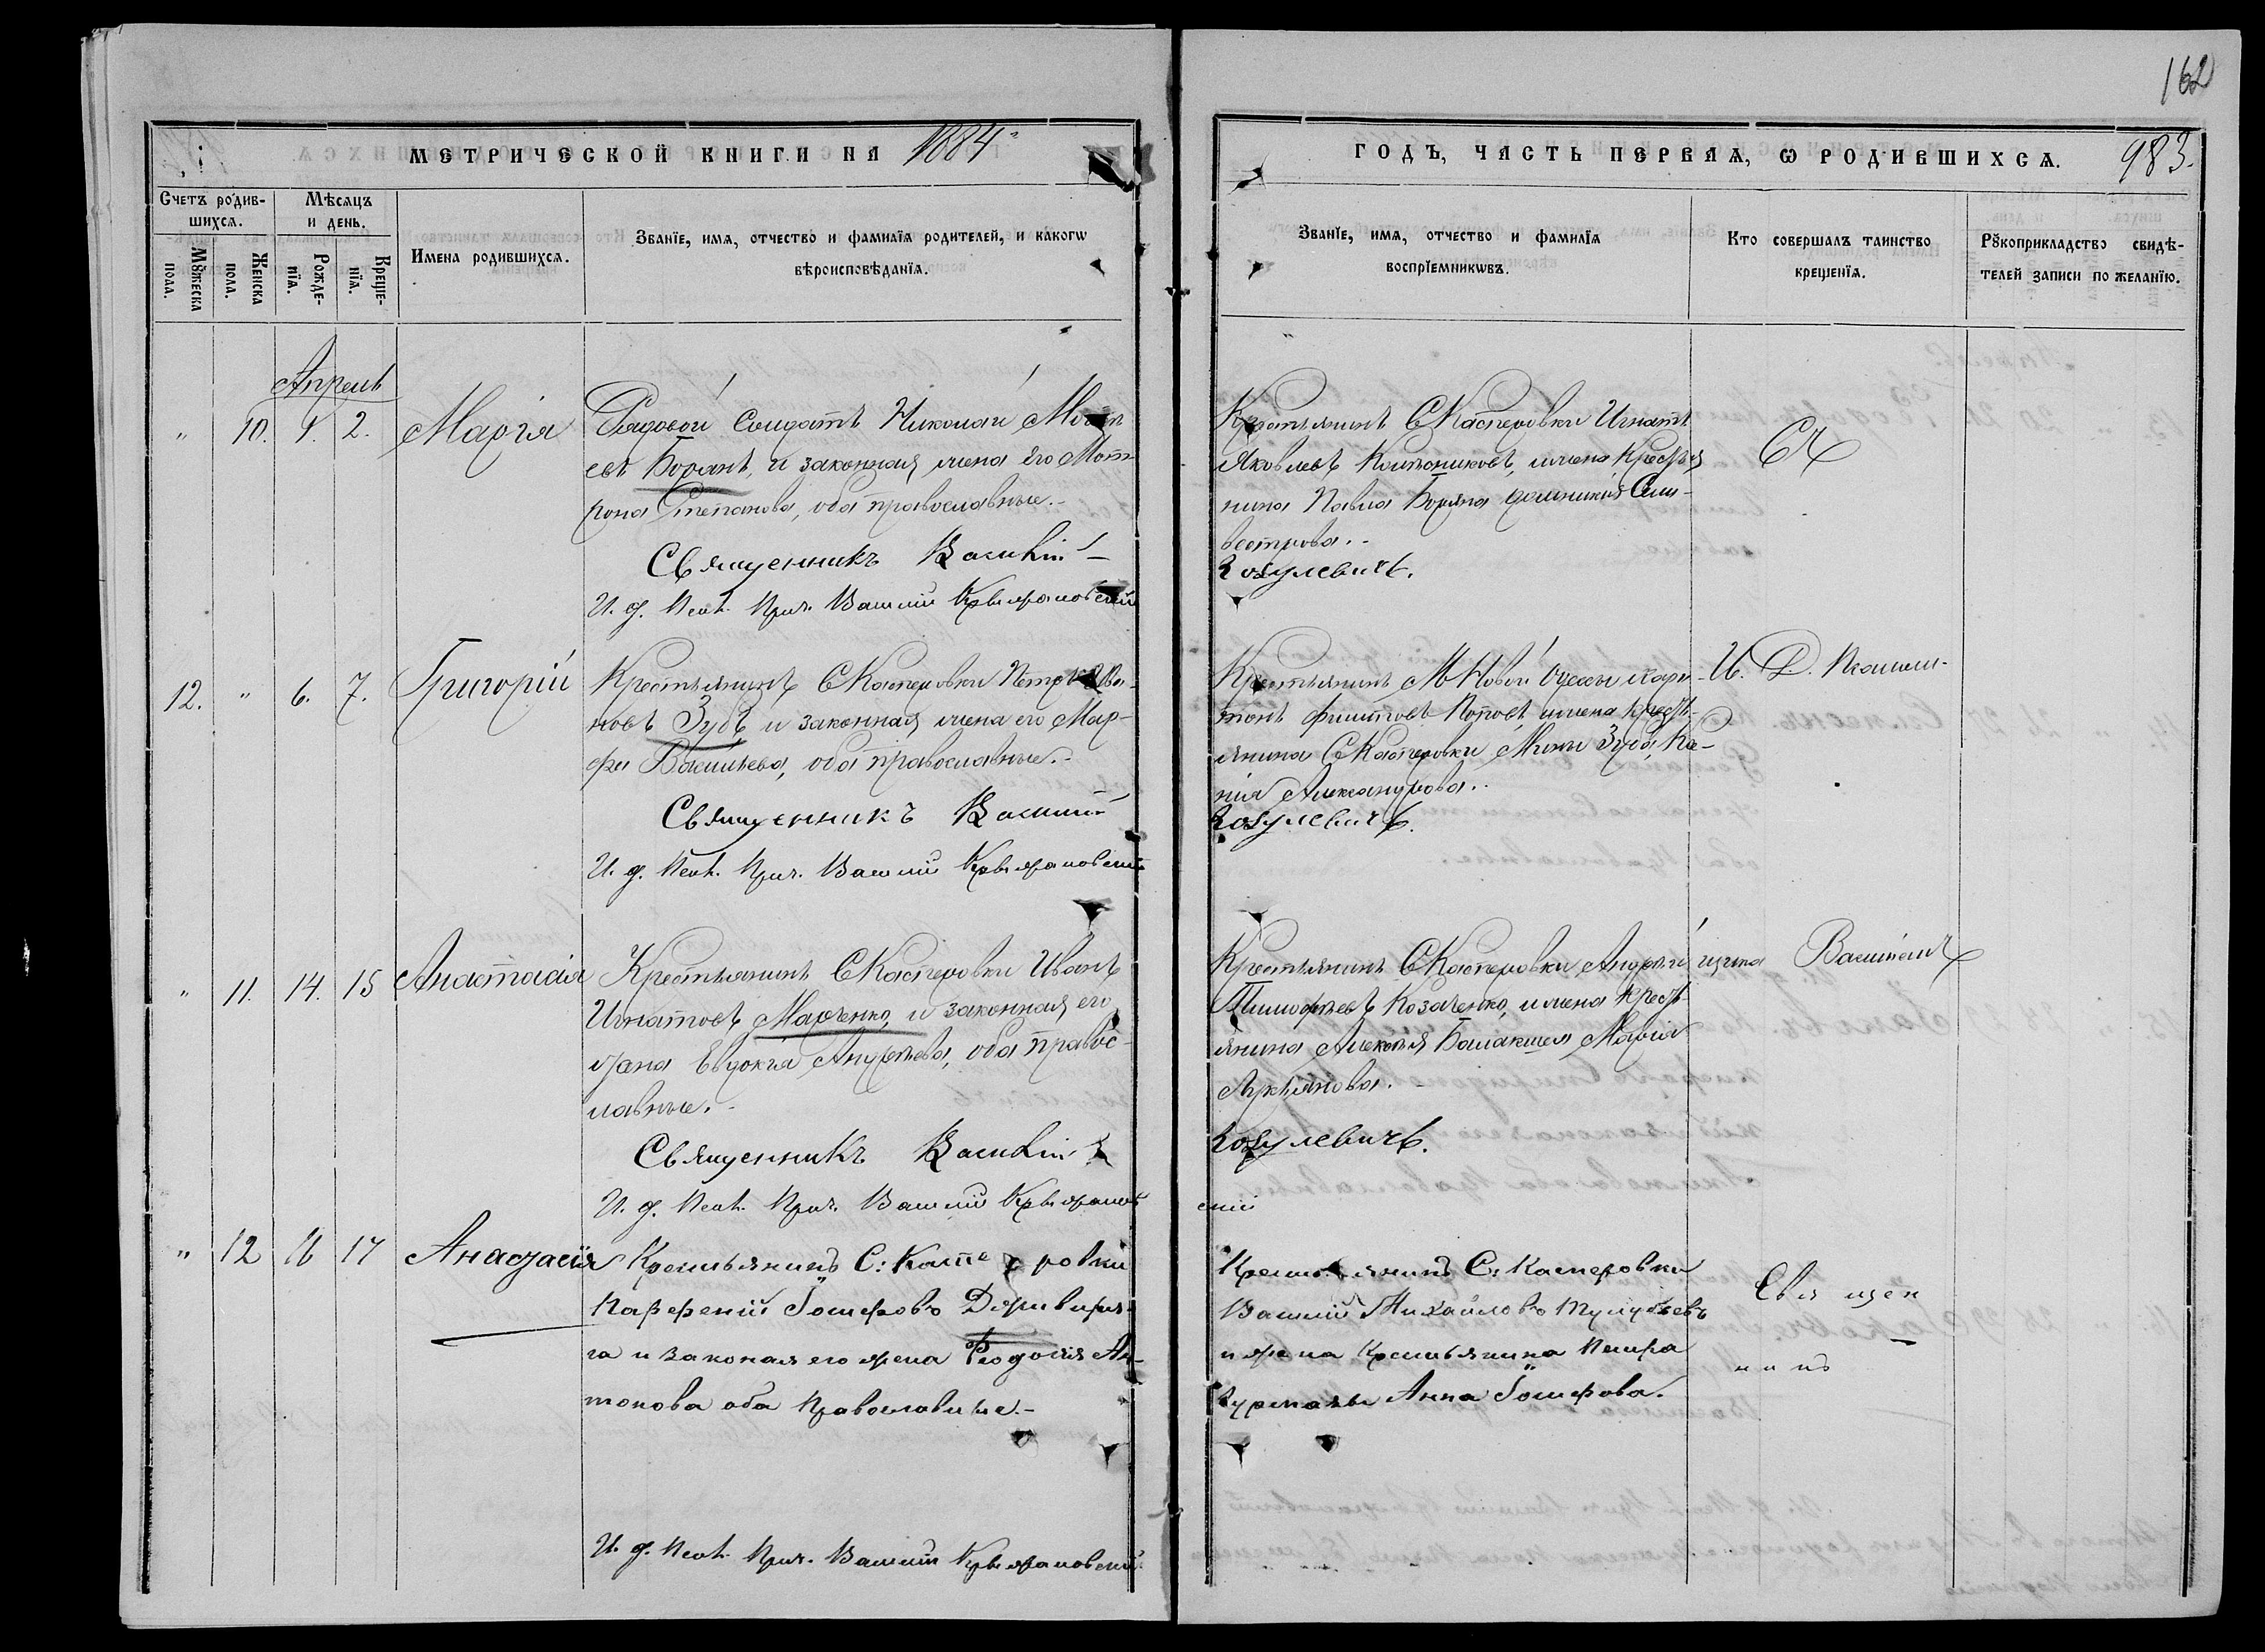 162
МЕТРИЧЕСКОЙ КНИГИ НА 1884
ГОДЪ, ЧАСТЬ ПЕРВАЯ, Ѡ РОДИВШИХСѦ. 983.
Счетъ родив-
шихсѧ.
Мѣсѧцъ
и день.
Мꙋжеска
пола.
Женска
пола.
Рожде-
нїѧ.
Креще-
нїѧ.
Имена родившихсѧ.
Званїе, имѧ, отчество и фамилїѧ родителей, и какогѡ
вѣроисповѣданїѧ.
Званїе, имѧ, отчество и фамилїѧ
воспрїемникѡвъ.
Кто совершалъ таинство
крещенїѧ.
Рꙋкоприкладство свидѣ-
телей записи по желанїю.
Апрель
" 10. 1. 2. Марія
Рядовой солдатъ Николай
евъ Боранъ, и законная жена его Мат-
рона Степанова, оба православные.-
Священникъ Василій
И. д. Псал. Прич. Василій
Крестьянинъ С Касперовки Игнатъ
Яковлевъ, и жена Крестья
нина Павла Сили-
вестрова.-
Козулевичъ.
12. " 6. 7. Григорій
Крестьянинъ С Касперовки Петръ Ива-
новъ Зубъ, и законная жена его Мар-
фа Васильева, оба православные.-
Священникъ Василій
И. д. Псал. Прич. Василій
Крестьянинъ М Новой Одессы Хари-
тонъ Филиповъ Поповъ, и жена Кресть-
янина С Касперовки Зуба,
нія Александрова.-
Козулевичъ.
И. Д. Псалом-
" 11. 14. 15 Анастасія
Крестьянинъ С Касперовки Иванъ
Игнатовъ Марченко, и законная его
жена Евдокія Андреева, оба правос-
лавные.-
Священникъ Василій
И. д. Псал. Прич. Василій
Крестьянинъ С Касперовки Андрей
Тимофеевъ Козаченко, и жена Кресть-
янина Алексѣя Марія
Лукьянова.-
Козулевичъ.
скій
щика
" 12 16 17 Анастасія
Крестьянинъ С: Касперовки
Парфеній Іосифовъ
га и законая его жена Феодосія Ан-
тонова оба Православные.-
И. д. Псал. Прич. Василій
Крестьянинъ С: Касперовки
Василій Михайловъ
и жена Крестьянина Петра
Анна Іосифова.
Священ
никъ